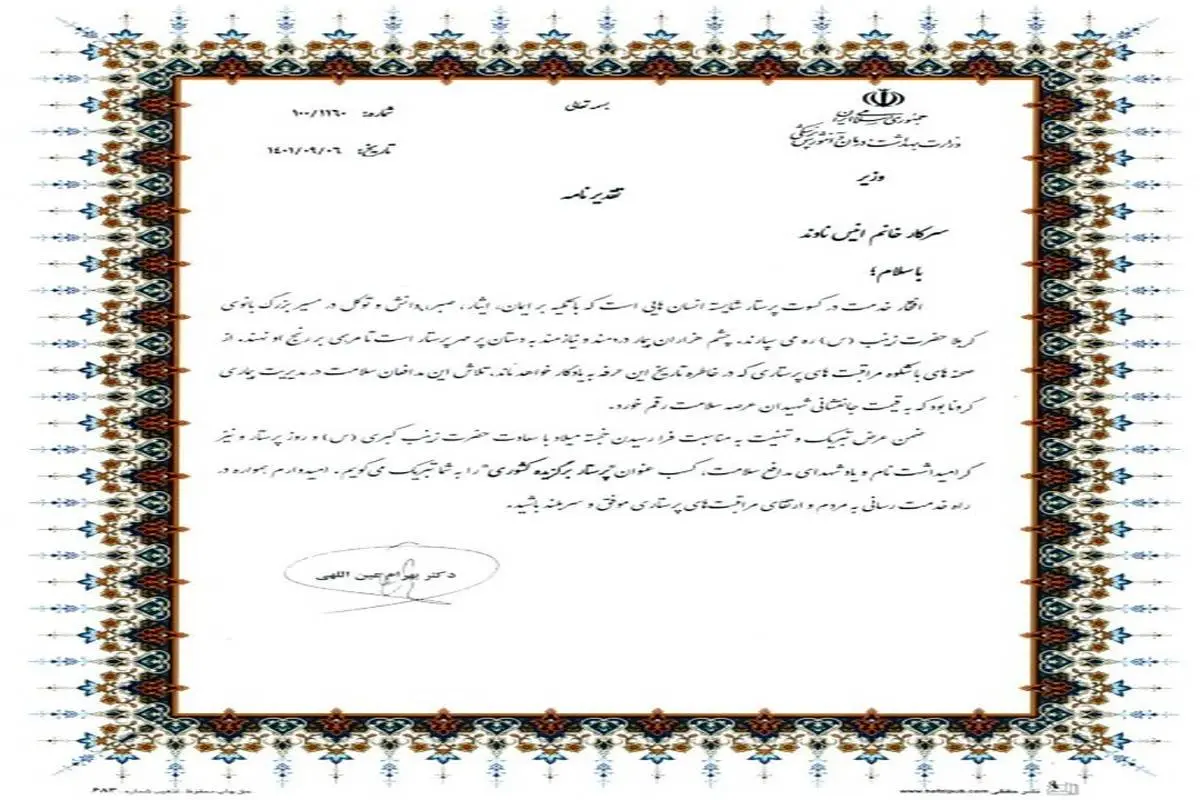 بسمه تعالی
جمهوری اسلامی ایران
وزارت بهداشت، درمان و آموزش پزشکی
وزیر
شماره: ۱۰۰/۱۱۶۰
تاریخ: ۱۴۰۱/۰۹/۰۶
تقدیرنامه
سرکار خانم انیس ناوند
با سلام؛
افتخار خدمت در کسوت پرستار شایسته انسان هایی است که با تکیه بر ایمان، ایثار، صبر، دانش و توکل در مسیر بزرگ بانوی
کربلا حضرت زینب (س) ره می سپارند. چشم هزاران بیمار دردمند و نیازمند به دستان پر مهر پرستار است تا مرهمی بر رنج او نهند. از
صحنه های با شکوه مراقبت های پرستاری که در خاطره تاریخ این حرفه به یادگار خواهد ماند، تلاش این مدافعان سلامت در مدیریت بیماری
کرونا بود که به قیمت جانفشانی شهیدان عرصه سلامت رقم خورد.
ضمن عرض تبریک و تهنیت به مناسبت فرا رسیدن خجسته میلاد با سعادت حضرت زینب کبری (س) و روز پرستار و نیز
گرامیداشت نام و یاد شهدای مدافع سلامت، کسب عنوان "پرستار برگزیده کشوری" را به شما تبریک می گویم. امیدوارم همواره در
راه خدمت رسانی به مردم و ارتقای مراقبت های پرستاری موفق و سربلند باشید.
دکتر بهرام عین اللهی
حق چاپ محفوظ